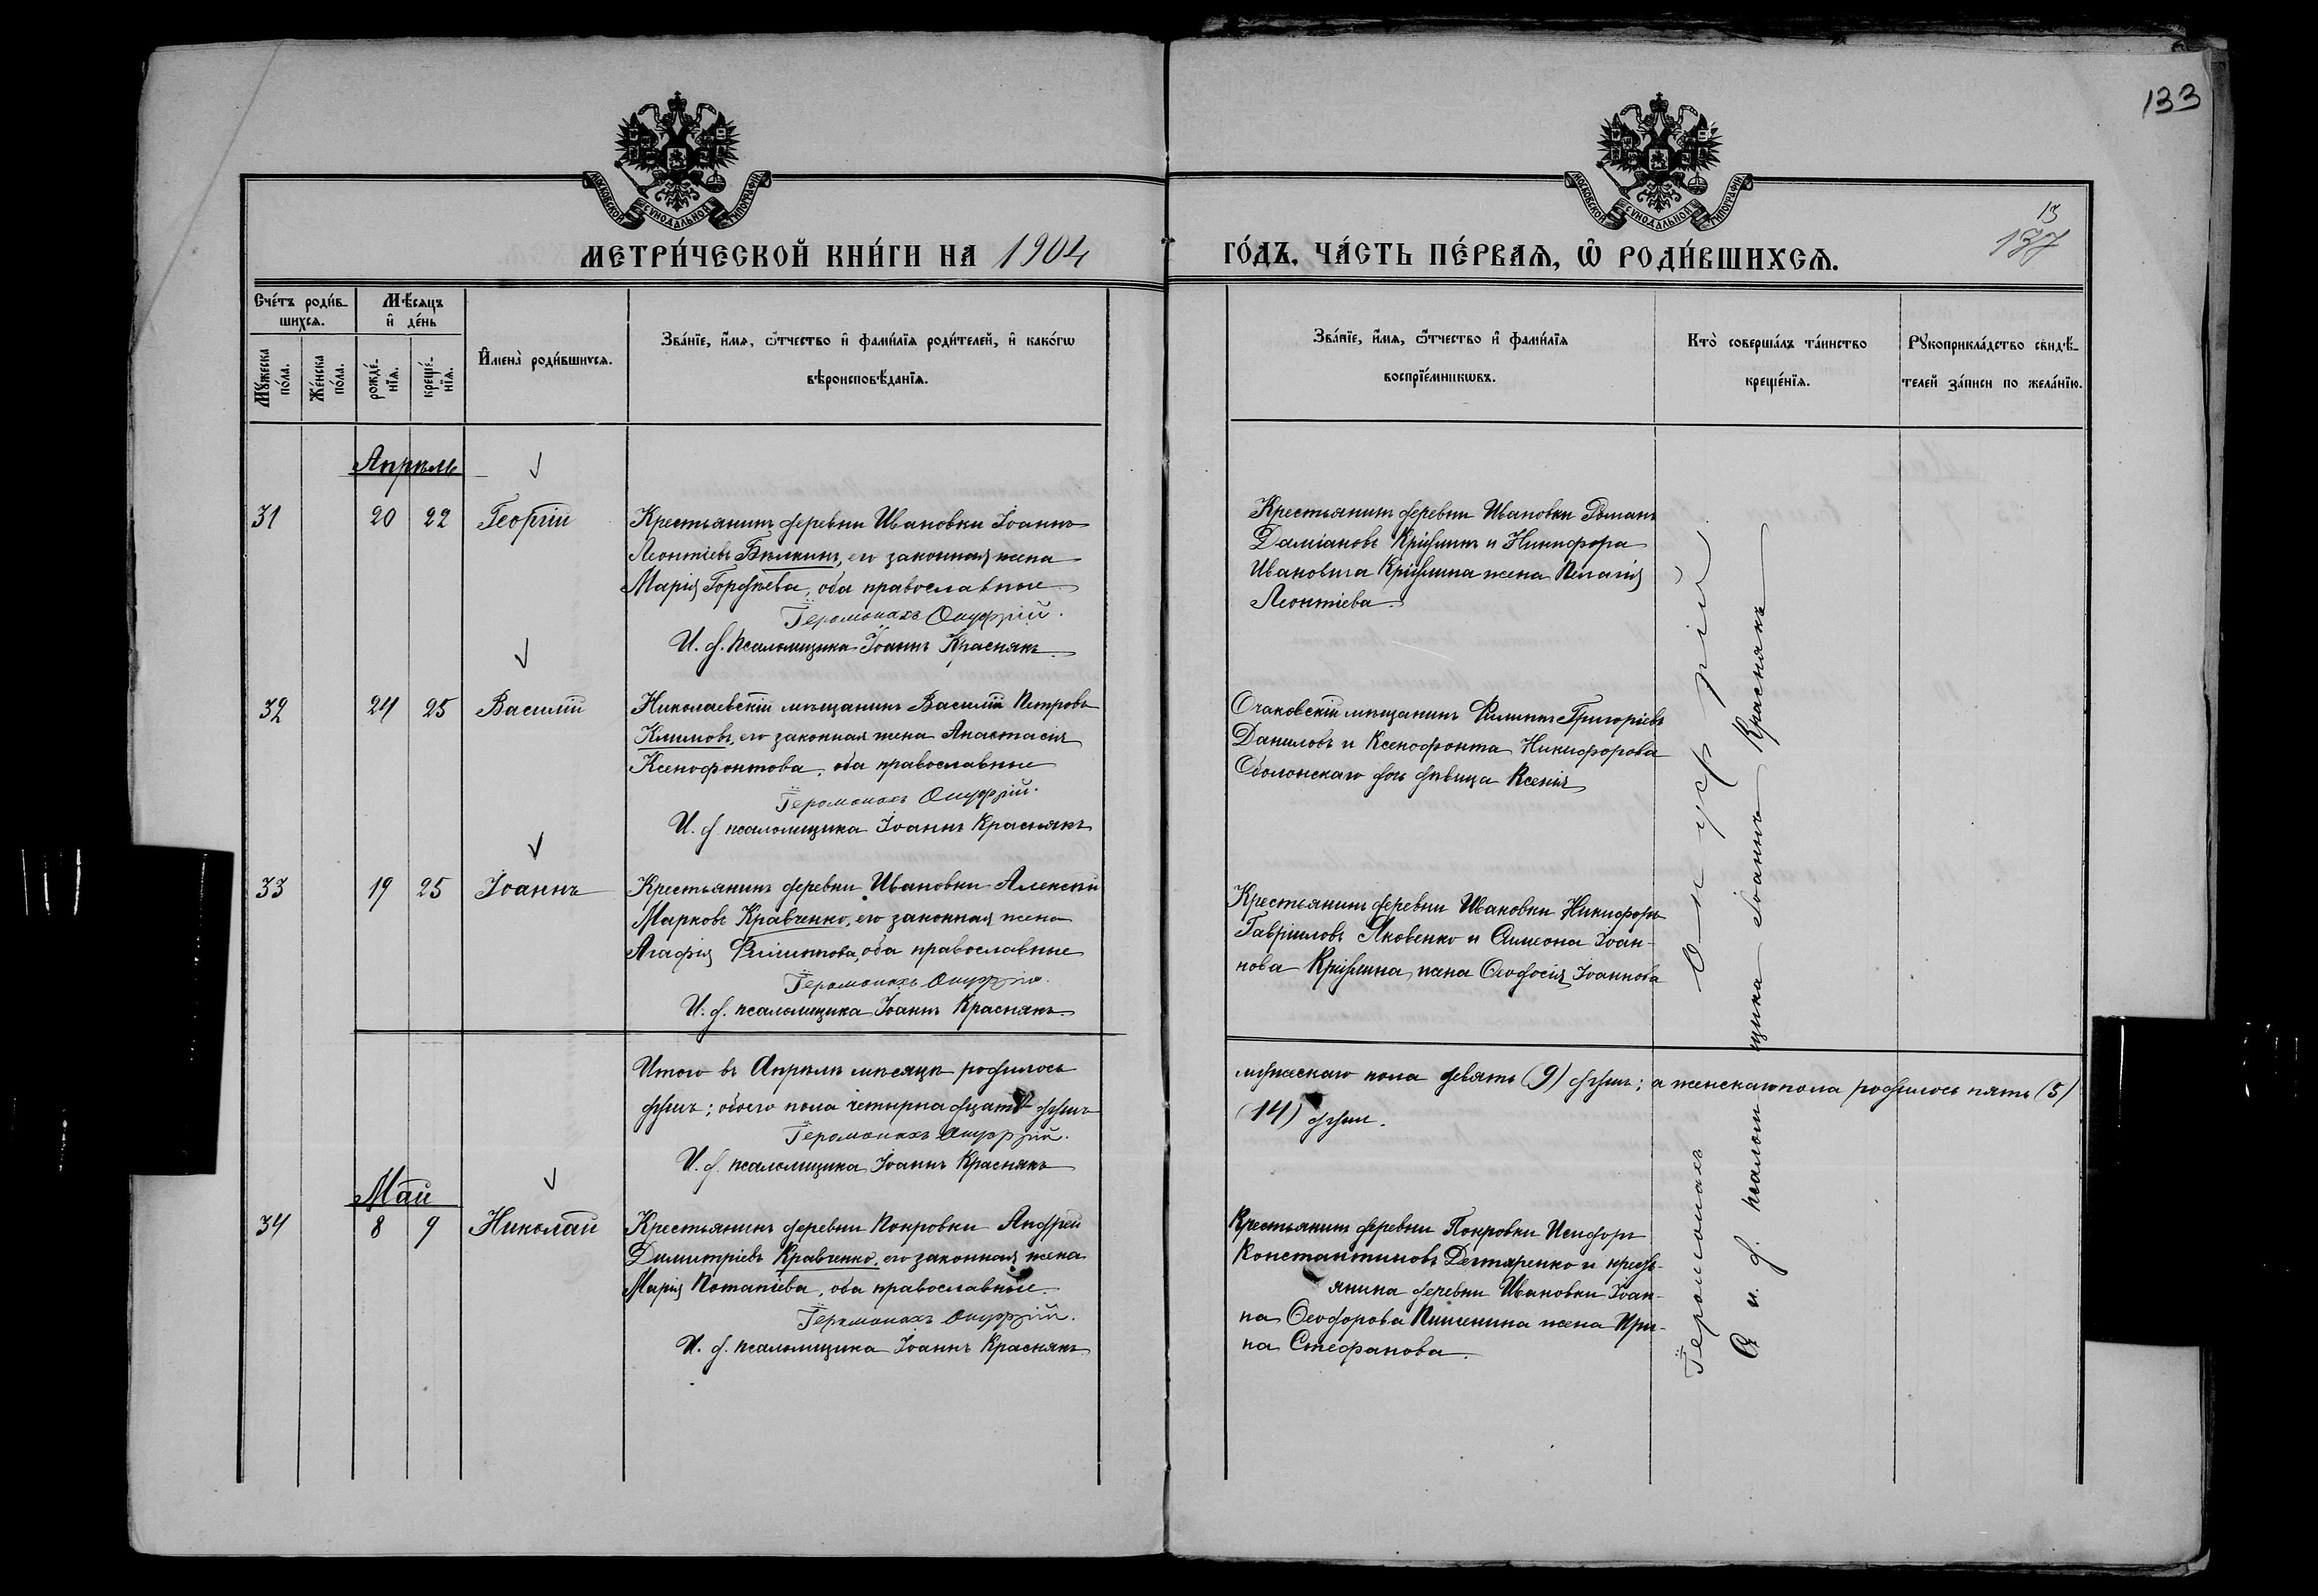 133
МОСКОВСКОЙ СѴНОДАЛЬНОЙ ТИПОГРАФІИ
МОСКОВСКОЙ СѴНОДАЛЬНОЙ ТИПОГРАФІИ
МЕТРИ́ЧЕСКОЙ КНИ́ГИ НА 1904
ГО́ДЪ, ЧА́СТЬ ПЕ́РВАѦ, Ѿ РОДИ́ВШИХСѦ.
13
137
Сче́тъ роди́в-
шихсѧ.
Мѣ́сѧцъ
и҆ де́нь
Мꙋ́жеска по́ла.
Же́нска по́ла.
рожде́-
нїѧ.
креще́-
нїѧ.
И҆мена̀ роди́вшихсѧ.
Зва́нїе, и҆́мѧ, ѻ҆́тчество и҆ фами́лїѧ роди́телей, и҆ како́гѡ
вѣроисповѣ́данїѧ.
Зва́нїе, и҆́мѧ, ѻ҆́тчество и҆ фами́лїѧ
воспрїе́мникѡвъ.
Кто̀ соверша́лъ та́инство
креще́нїѧ.
Рꙋкоприкла́дство свидѣ́-
телей за́писи по жела́нїю.
Апрѣль
31 20 22 Георгій
Крестьянинъ деревни Ивановки Іоаннъ
Леонтіевъ Бѣлкинъ, его законная жена
Марія Гордѣева, оба православные
Іеромонахъ Онуфрій.
И. д. псаломщика Іоаннъ Краснякъ
Крестьянинъ деревни Ивановки Романъ
Даміановъ Кришинъ и Никифора
Ивановича Кришина жена Пелагія
Леонтіева.
32 24 25 Василій
Николаевскій мѣщанинъ Василій Петровъ
Климовъ, его законная жена Анастасія
Ксенофонтова, оба православные
Іеромонахъ Онуфрій.
И. д. псаломщика Іоаннъ Краснякъ
Очаковскій мѣщанинъ Филиппъ Григоріевъ
Даниловъ и Ксенофонта Никифорова
Оболонскаго дочь дѣвица Ксенія
33 19 25 Іоаннъ
Крестьянинъ деревни Ивановки Алексій
Марковъ Кравченко, его законная жена
Агафія Филиппова, оба православные
Іеромонахъ Онуфрій.
И. д. псаломщика Іоаннъ Краснякъ
Крестьянинъ деревни Ивановки Никифоръ
Гавріиловъ Яковенко и Симеона Іоан-
нова Кришина жена Ѳеодосія Іоаннова
Итого въ Апрѣлѣ мѣсяцѣ родилось
мужескаго пола девять (9) душъ; а женскаго пола родилось пять (5)
душъ; обоего пола четырнадцать душъ
(14) душъ.
Іеромонахъ Онуфрій.
И. д. псаломщика Іоаннъ Краснякъ
Май
34 8 9 Николай
Крестьянинъ деревни Покровки Андрей
Димитріевъ Кравченко, его законная жена
Марія Потапіева, оба православные
Іеромонахъ Онуфрій.
И. д. псаломщика Іоаннъ Краснякъ
Крестьянинъ деревни Покровки Исидоръ
Константиновъ Дегтяренко и крестъ-
янина деревни Ивановки Іоан-
на Ѳеодорова Пименина жена Ири-
на Стефанова.
Іеромонахъ Онуфрій
И. д. псаломщика Іоаннъ Краснякъ